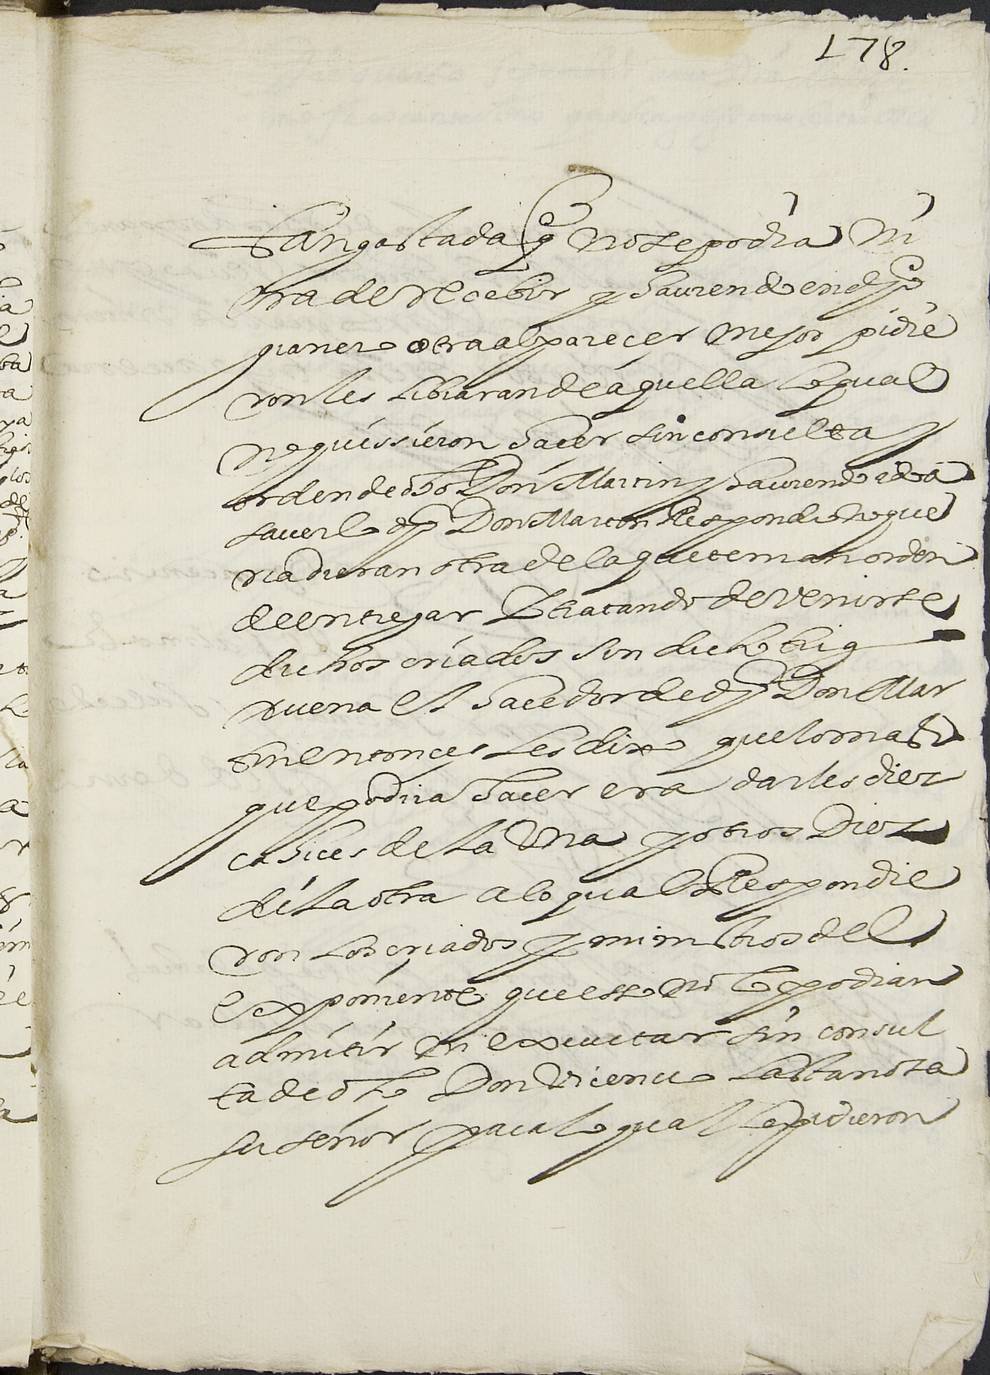 178.
tangastada q no se podia ni
tra de recebir y haviendo en dho
graner otra al parecer mejor pidie
ronles libraran de aquella lo qual
no quissieron hacer sin consulta y
orden de dho Don Martin y haviendo
saver dho Don Martin Respondio que
rian otra de la que tenian orden
de entregar Y tratando de venirse
dichos criados sin dicho trig
Don Mar
tin entonces les dixo que lo mas
que podria hacer era darles diez
cahices de la una y otros Diez
de la otra a lo qual Respondie
ron los criados y ministros del
exponiente que esso no lo podian
admitir ni executar sin consul
ta de dho Don Vicencio Lastanosa
su señor para lo qual le pidieron